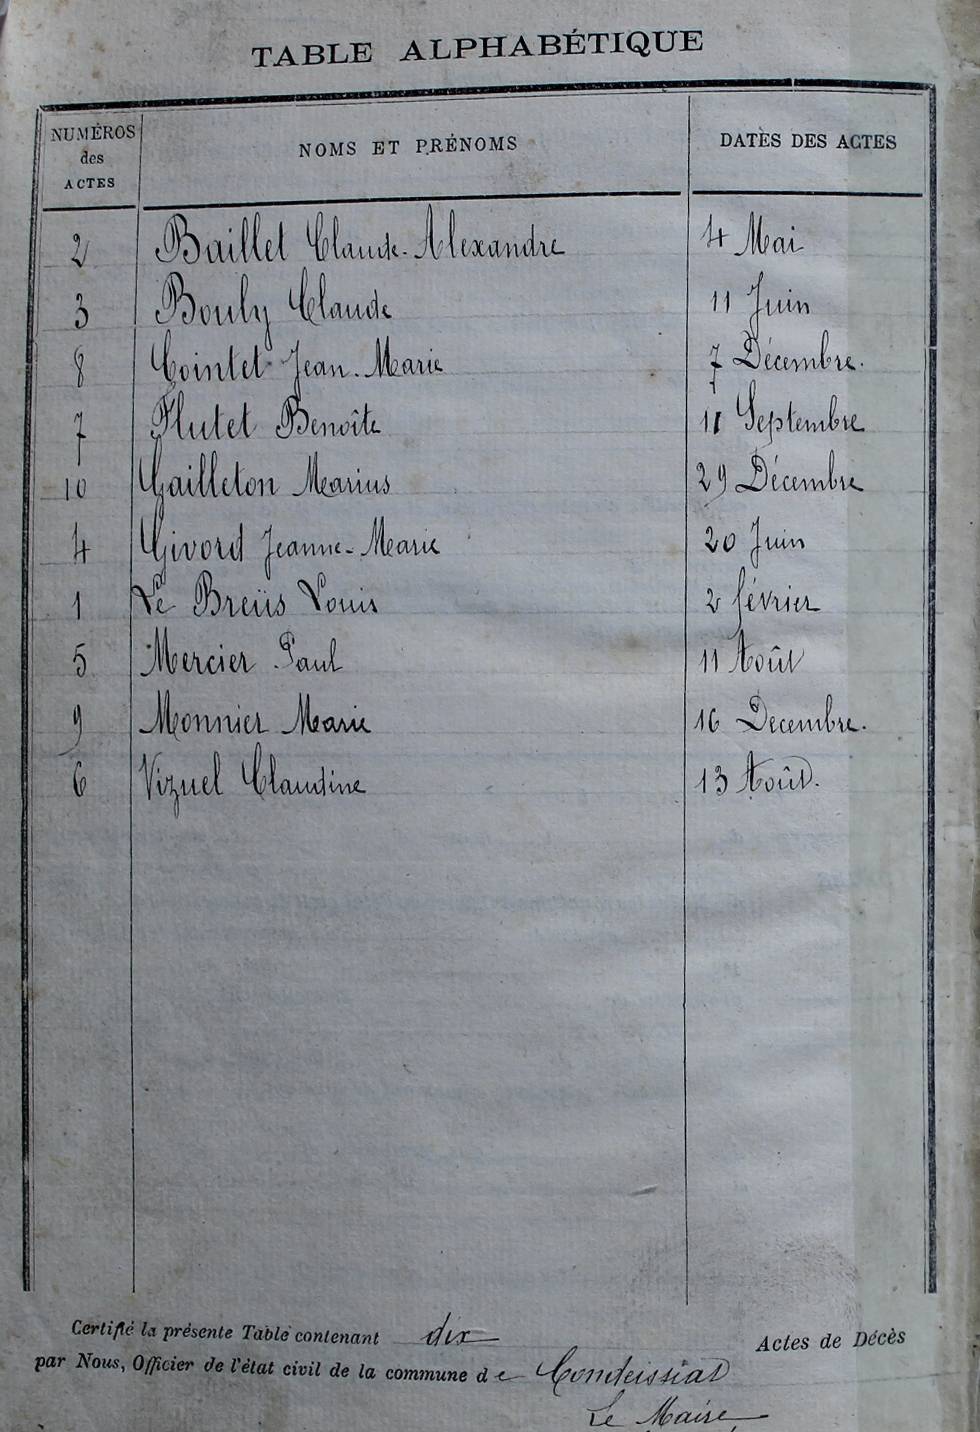 TABLE ALPHABÉTIQUE
NUMÉROS des ACTES NOMS ET PRÉNOMS DATES DES ACTES
2 Baillet Claude-Alexandre 4 Mai
3 Bouly Claude 11 Juin
8 Cointet Jean-Marie 7 Décembre.
7 Flutet Benoîte 11 Septembre
10 Gailleton Marius 29 Décembre
4 Givord Jeanne-Marie 20 Juin
1 Le Breüs Louis 2 février
5 Mercier Paul 11 Août
9 Monnier Marie 16 Decembre.
6 Vizuel Claudine 13 Août.
Certifié la présente Table contenant dix Actes de Décès
par Nous, Officier de l'état civil de la commune de Condeissiat
Le Maire,